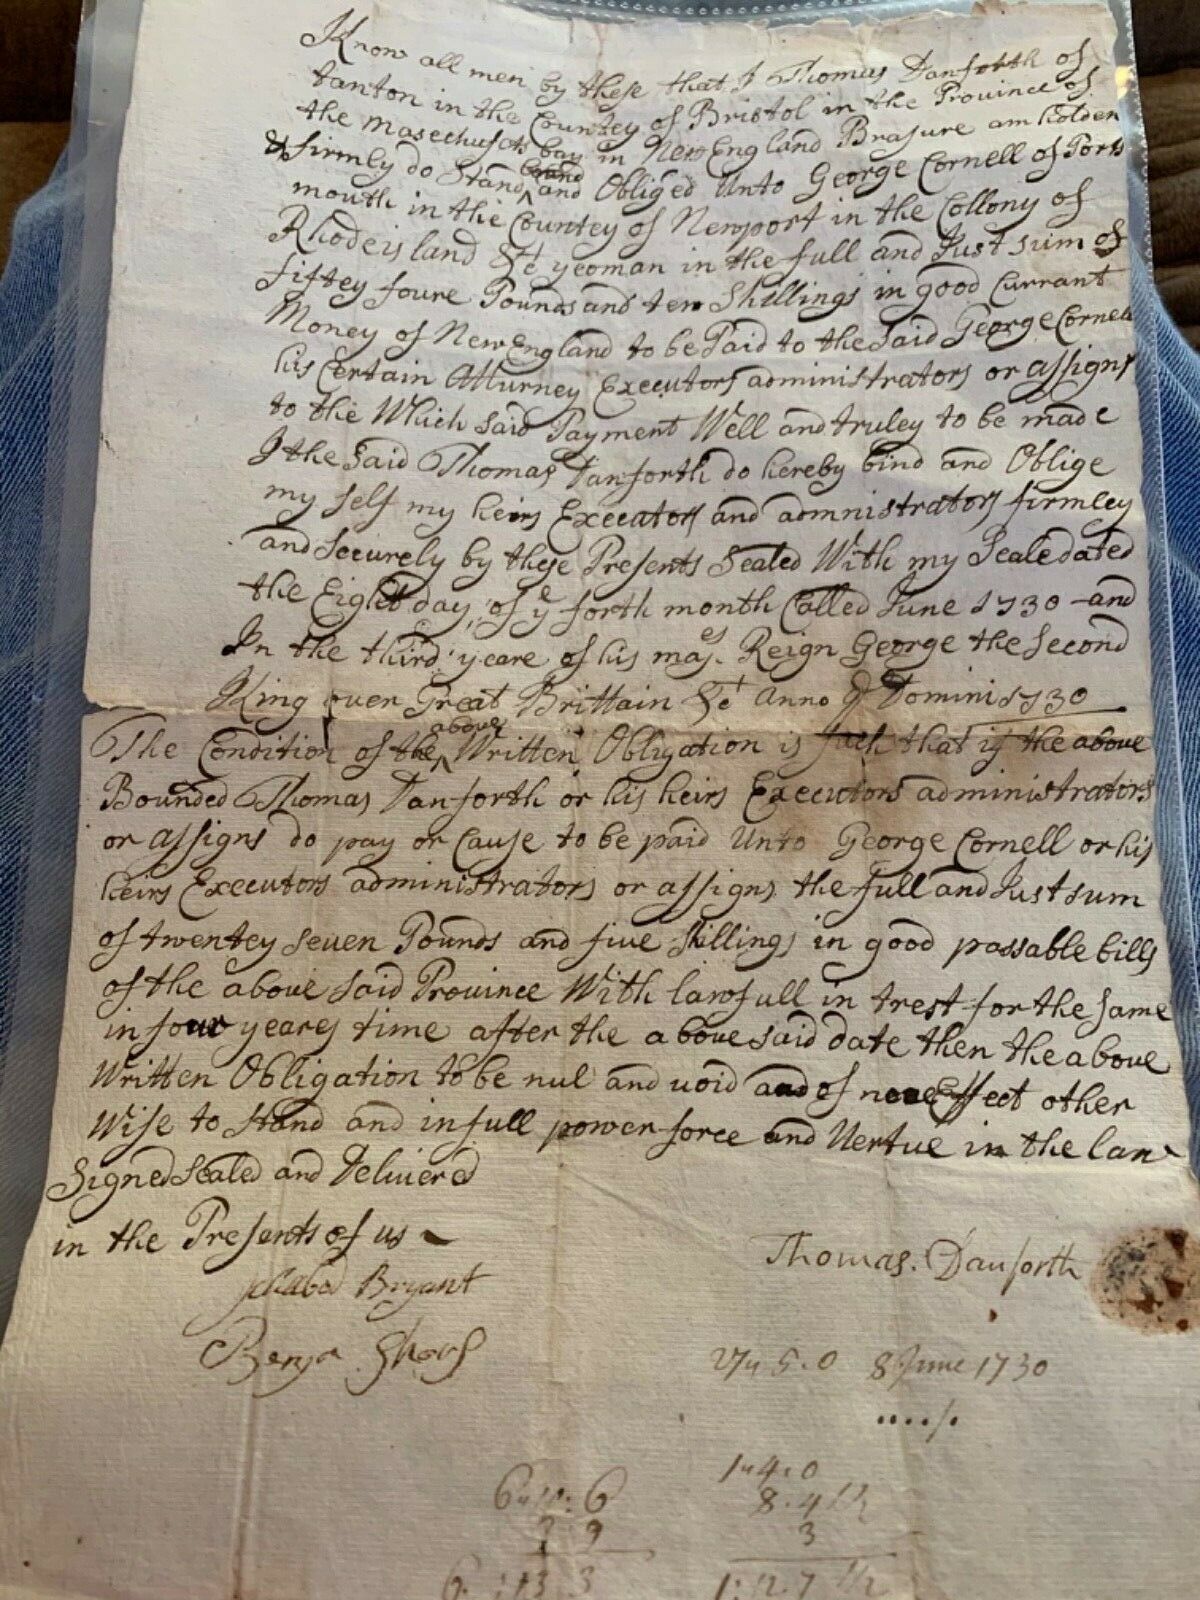 Know all men by these that I Thomas Danforth of
tanton in the Countey of Bristol in the Prouince of
the Masechusets bay in New England Brasure am holden
& firmly do Stand bound and Obliged Unto George Cornell of Ports
mouth in the Countey of Newport in the Collony of
Rhode island &c yeoman in the full and Just sum of
fiftey foure Pounds and ten Shillings in good Currant
Money of New England to be Paid to the Said George Cornell
his Certain Atturney Executors administrators or assigns
to the Which said Payment Well and truley to be made
I the Said Thomas Danforth do hereby bind and Oblige
my self my heirs Executors and admnistrators firmley
and Securely by these Presents Sealed With my Seale dated
the Eight day of ye forth month Called June 1730 and
In the third yeare of his majes Reign George the Second
King ouer Great Brittain &c Anno Domini 1730
The Condition of the above Written Obligation is such that if the aboue
Bounded Thomas Danforth or his heirs Executors administrators
or assigns do pay or Cause to be paid Unto George Cornell or his
heirs Executors administrators or assigns the full and Just sum
of twentey seuen Pounds and fiue skillings in good passable bills
of the aboue said Prouince With lawfull in trest for the same
in four yeares time after the aboue said date then the aboue
Written Obligation to be nul and uoid and of none Effect other
Wise to Stand and in full power force and Uertue in the law
Signed Sealed and Deliuered
in the Presents of us
Thomas. Danforth
Ichabod Bryant
Benja
27 5.0 8 June 1730
1 4.0
8.4 1/2
3
1:12.7 1/2
6 : 6
3 9
6. :13 3